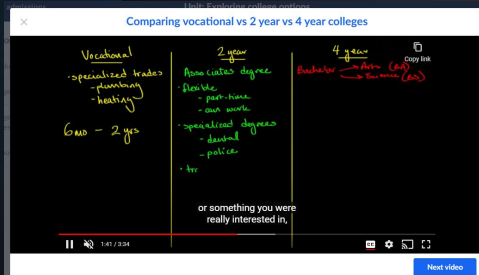 Unit: Exploring college options
Comparing vocational vs 2 year vs 4 year colleges
Copy link
Vocational
• specialized trades
- plumbing
- heating
6 mo - 2 yrs
2 year
Associates degree
• flexible
- part-time
- work
• specialized degrees
- dental
- police
4 year
Bachelor Arts (BA)
Science (BS)
or something you were
really interested in,
1:41 / 3:34
CC
Next video